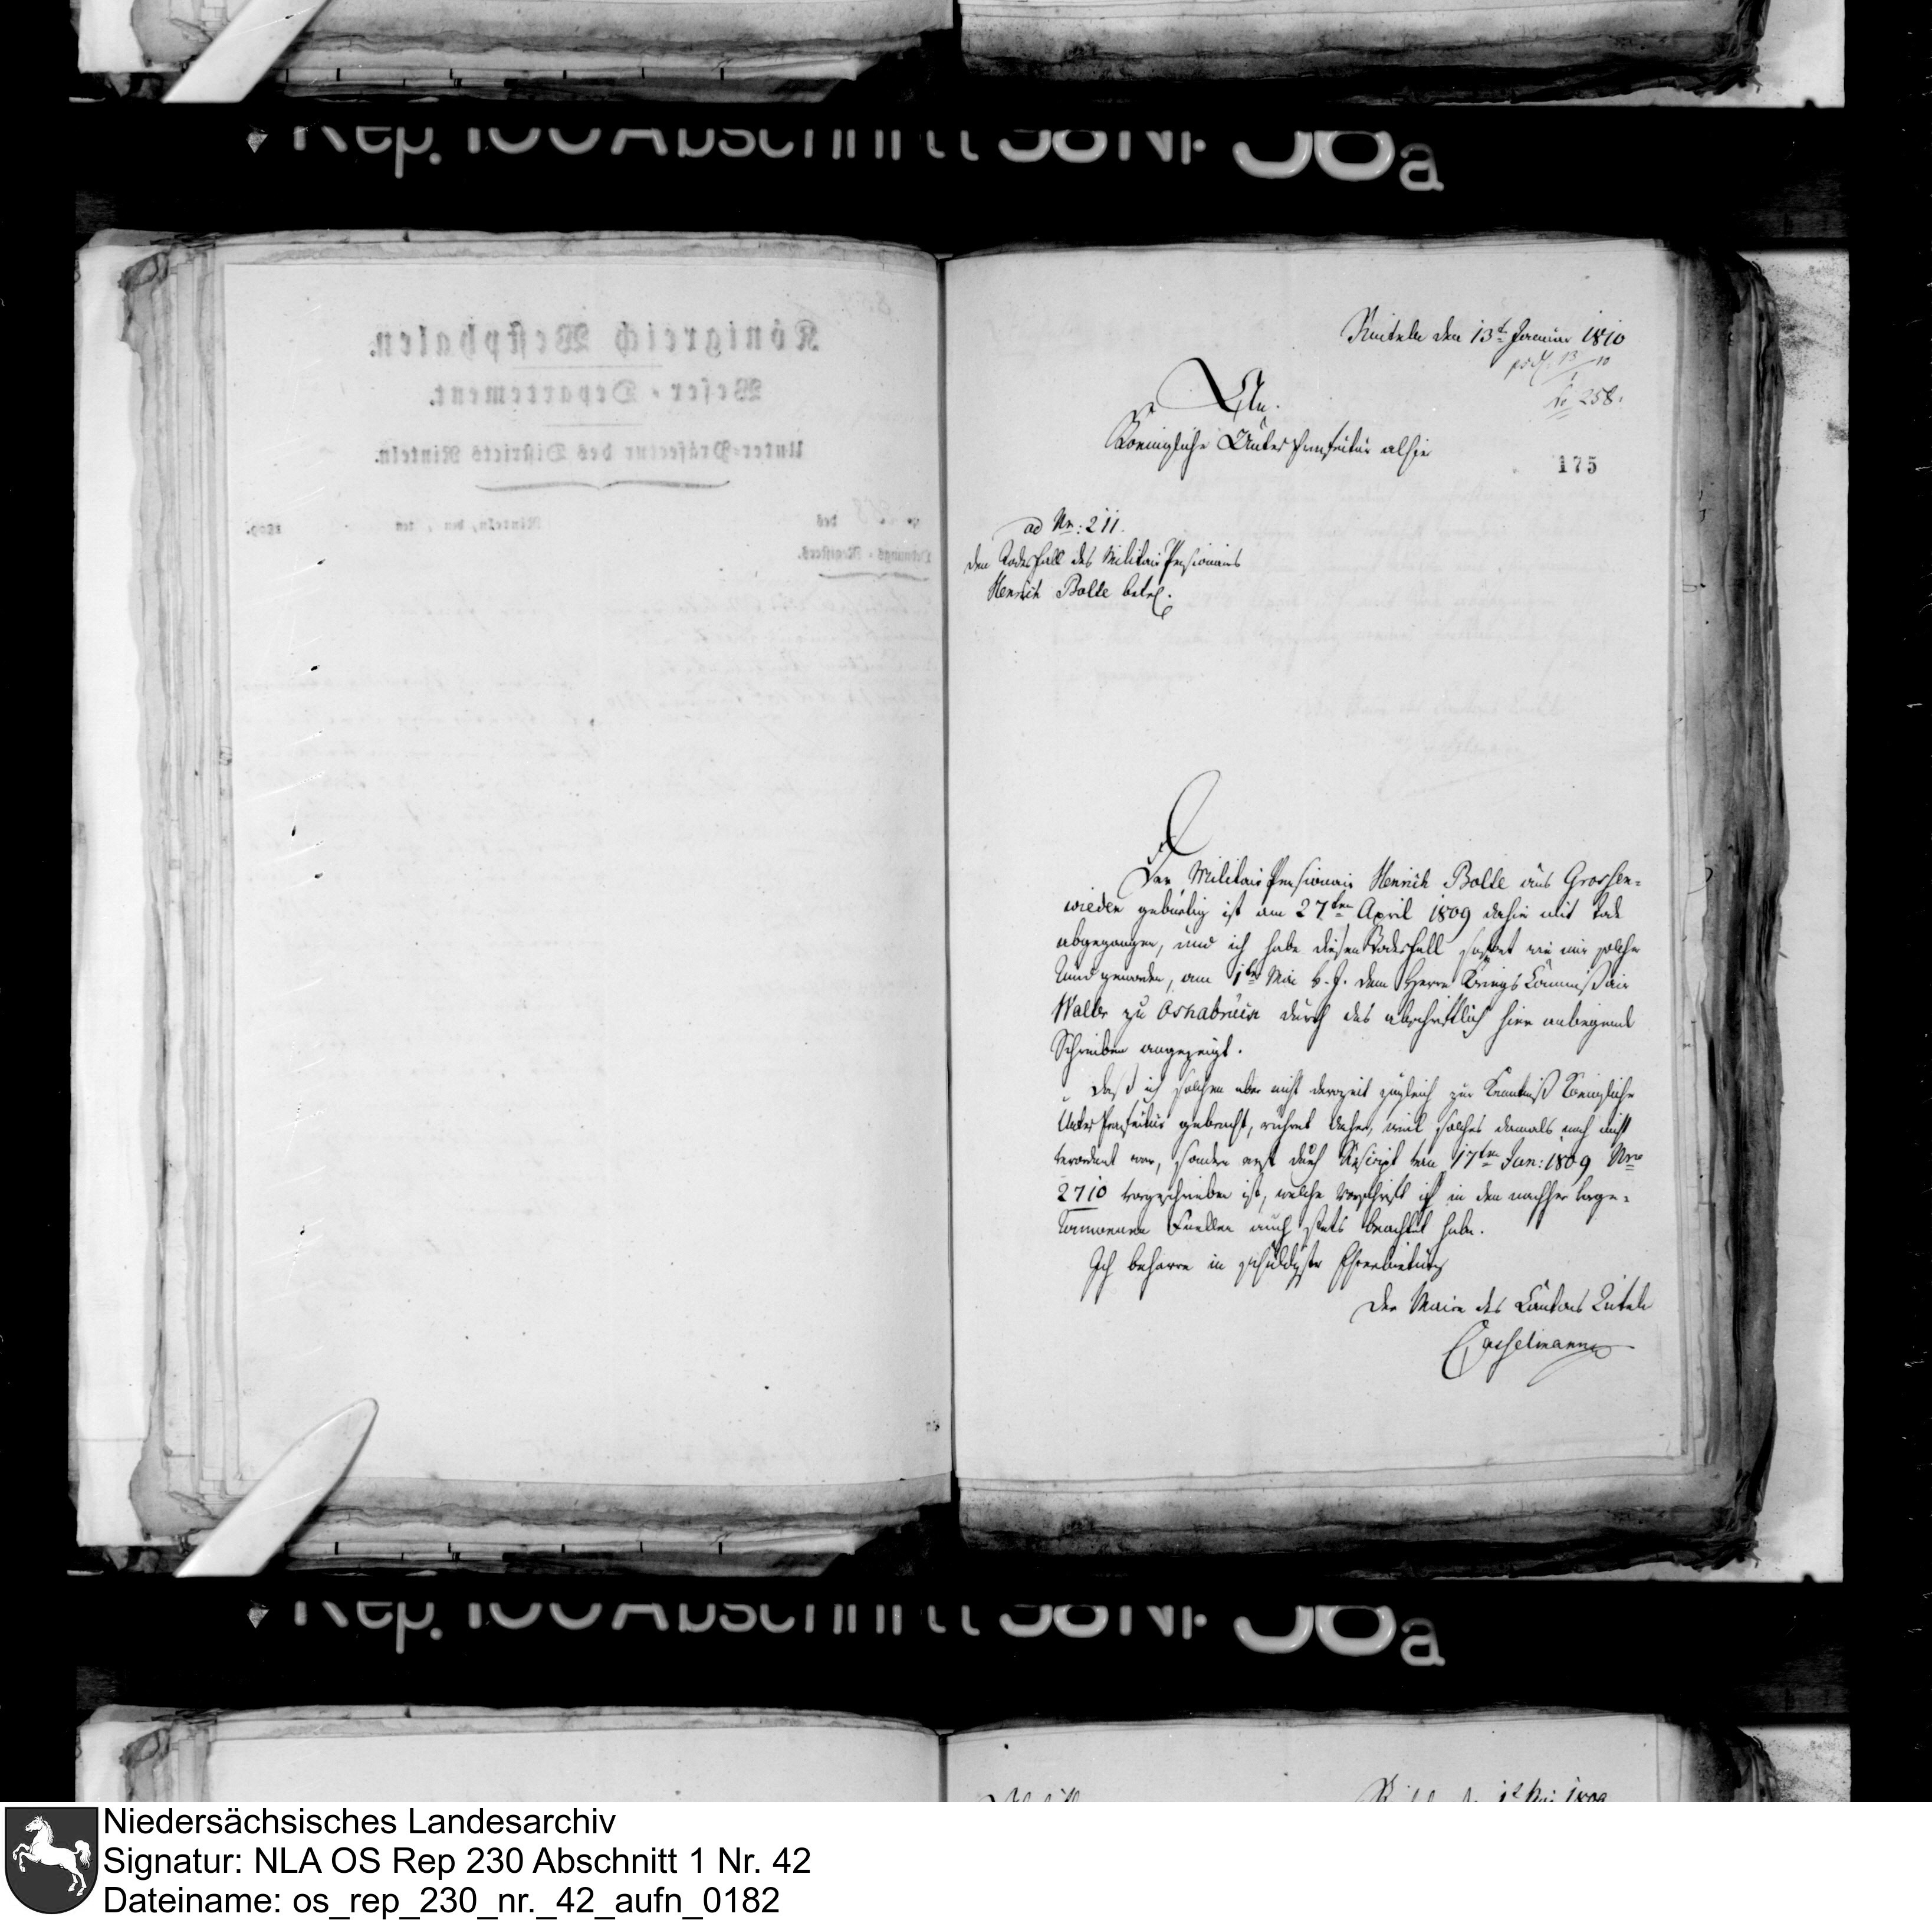 Rep. 100 Abschnitt 58 Nr 36a
Königreich Westphalen.
Weser-Departement.
Unter-Präfectur des Districts Rinteln.
des
Rinteln, den ten 1809.
Ordnungs-Registers.
Rinteln den 13t Januar 1810
No 258.
An
Koenigliche Unter Praefectur alhier
175
ad Nr: 211.
den Todesfall des Militair Pensionairs
Henrich Bolte betrf.
Der Militair Pensionair Henrich Bolte aus Grossen-
wieden gebürtig ist am 27ten April 1809 dahier mit Tode
abgegangen, und ich habe diesen Todesfall sofort wie mir solcher
kund geworden, am 1ten Mai v. J. dem Herrn Kriegs Commißair
Walter zu Osnabrück durch das abschriftlich hier anliegende
Schreiben angezeigt.
Daß ich solchen aber nicht derzeit zugleich zur Kenntniß Koenigliche
Unter Praefectur gebracht, rühret daher, weil solches damals noch nicht
verordnet war, sondern erst durch Rescript vom 17ten Jun: 1809 Nro
2710 vorgeschrieben ist, welche Vorschrift ich in den nachher vorge-
kommenen Faellen auch stets beachtet habe.
Ich beharre in schuldigster Ehrerbietung
Der Maire des Cantons Rinteln
Casselmann
Rep. 100 Abschnitt 58 Nr 36a
Niedersächsisches Landesarchiv
Signatur: NLA OS Rep 230 Abschnitt 1 Nr. 42
Dateiname: os_rep_230_nr._42_aufn_0182